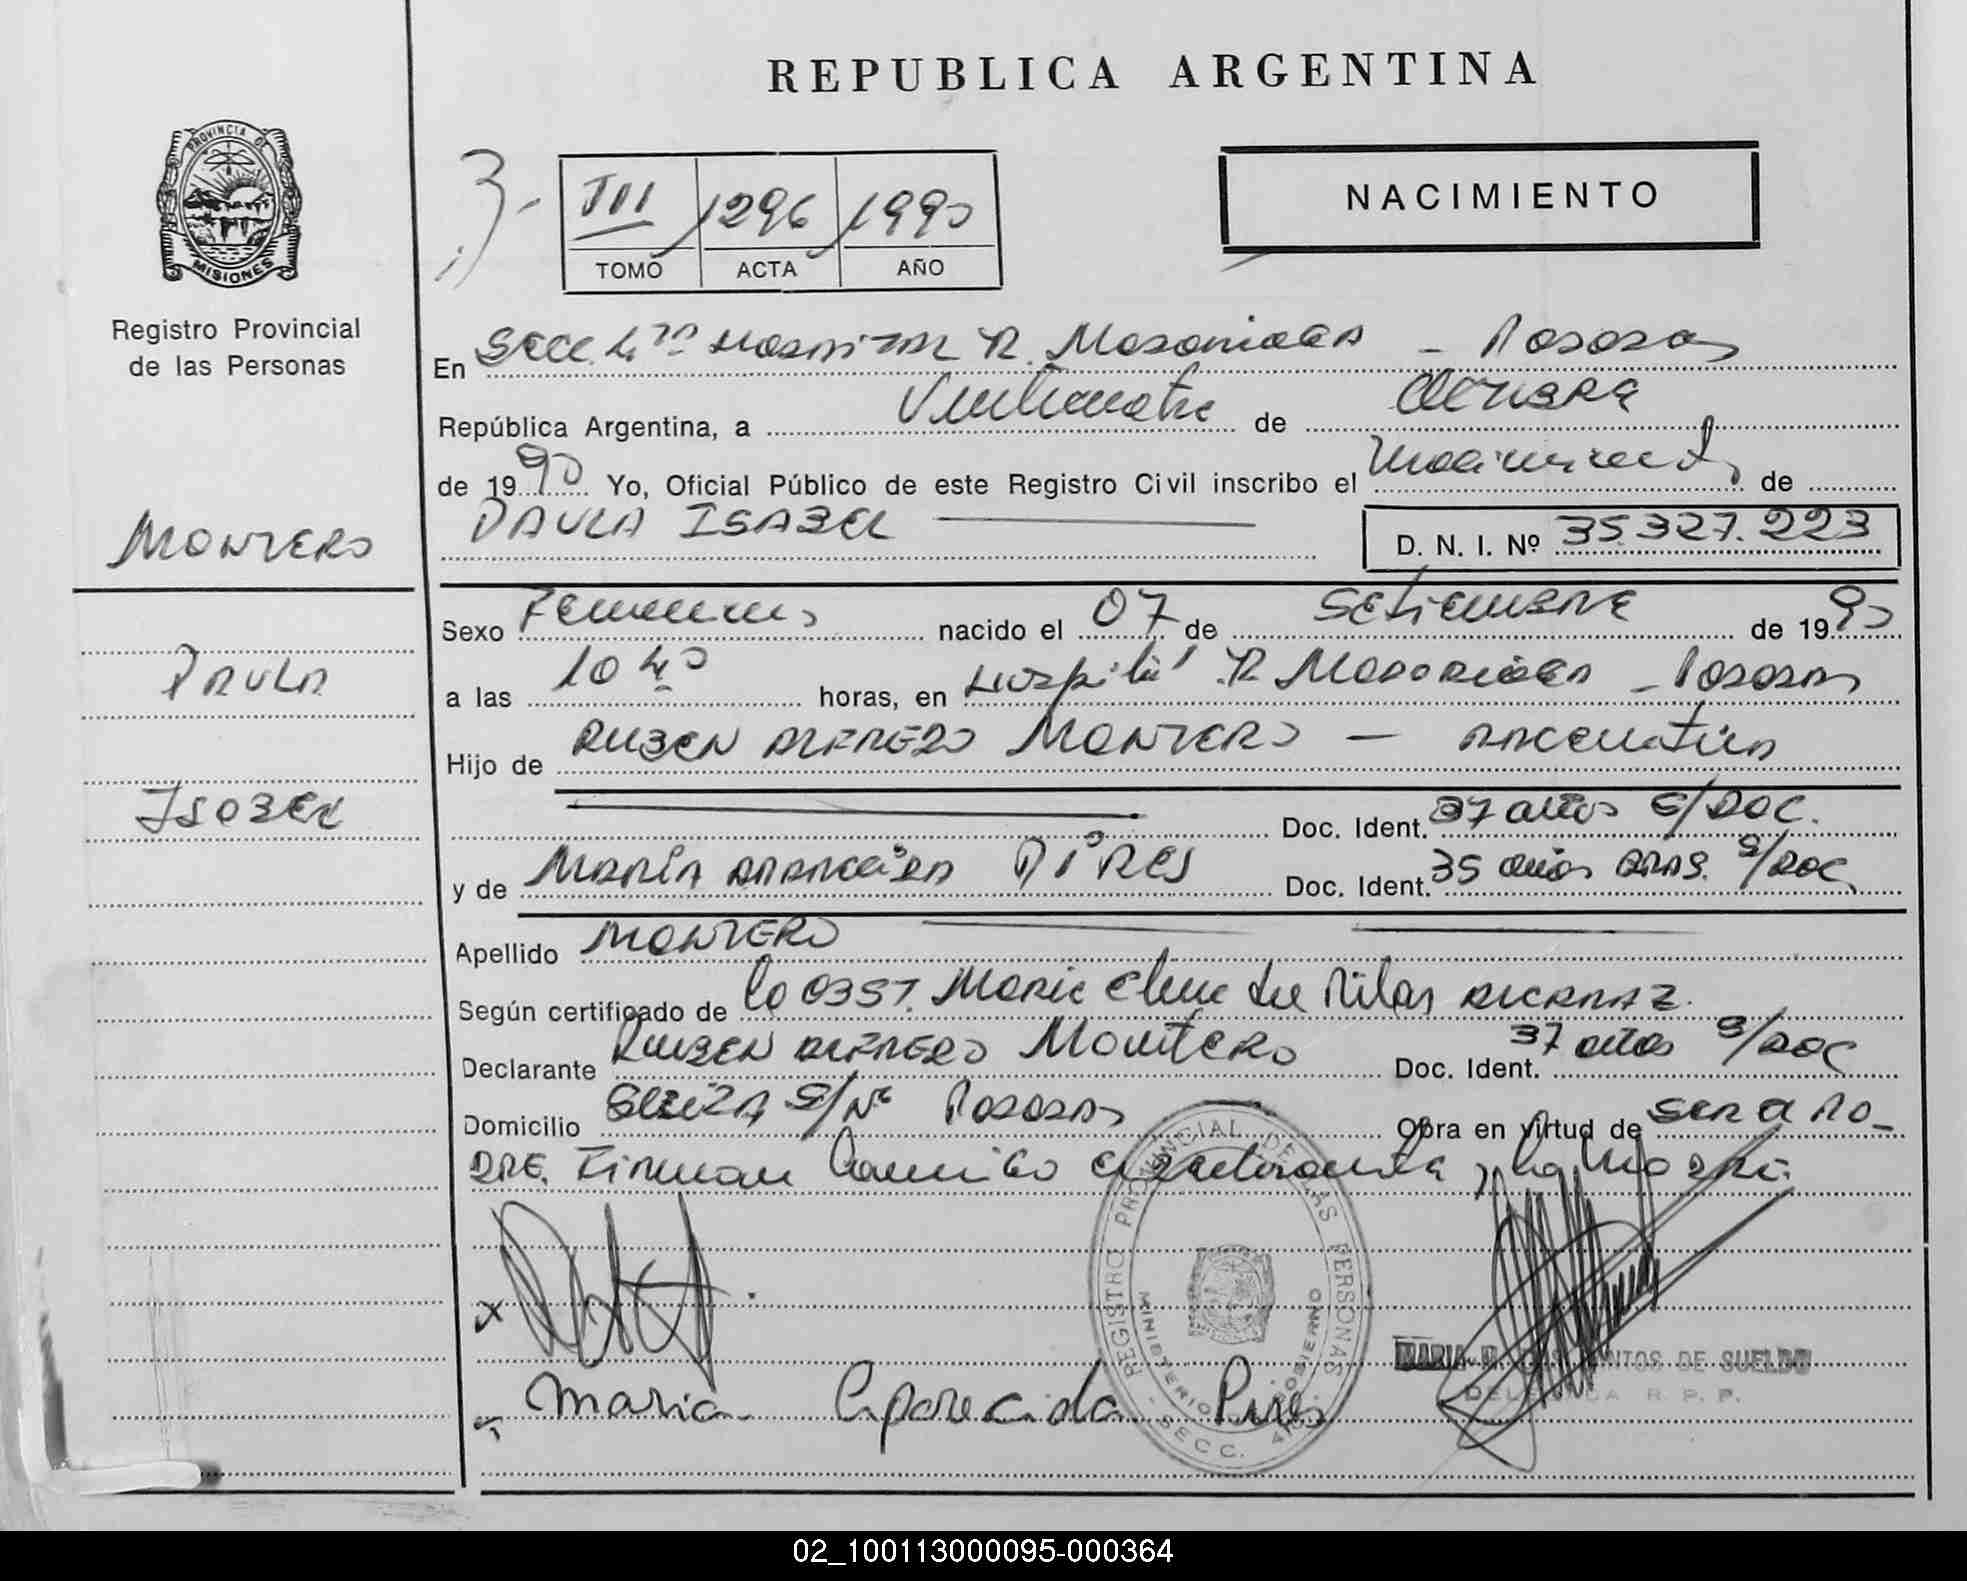 REPUBLICA ARGENTINA
PROVINCIA DE
MISIONES
Registro Provincial
de las Personas
3-
III 1296 1990
TOMO ACTA AÑO
NACIMIENTO
En Secc. 4ta Hospital R. Madariaga - Posadas
República Argentina, a Veinticuatro de Octubre
de 1990 Yo, Oficial Público de este Registro Civil inscribo el Nacimiento de
PAULA ISABEL
D. N. I. Nº 35.327.223
MONTERO
PAULA
ISABEL
Sexo Femenino nacido el 07 de Setiembre de 1990
a las 10 40 horas, en Hospital R. Madariaga - Posadas
Hijo de RUBEN ALFREDO MONTERO - ARGENTINA
Doc. Ident. 37 años S/DOC.
y de MARÍA APARECIDA PIRES Doc. Ident. 35 años BRAS. S/DOC
Apellido MONTERO
Según certificado de la OBST. Maria Elena del Pilar
Declarante RUBEN ALFREDO MONTERO Doc. Ident. 37 años S/DOC
Domicilio S/Nº Posadas Obra en virtud de ser el PA-
DRE. Firman conmigo el declarante y la madre.
REGISTRO PROVINCIAL DE LAS PERSONAS
MINISTERIO GOBIERNO
SECC. 4ta
MARIA DOS SANTOS DE SUELDO
DELEGADA R. P. P.
x
Maria Aparecida Pires
02_100113000095-000364